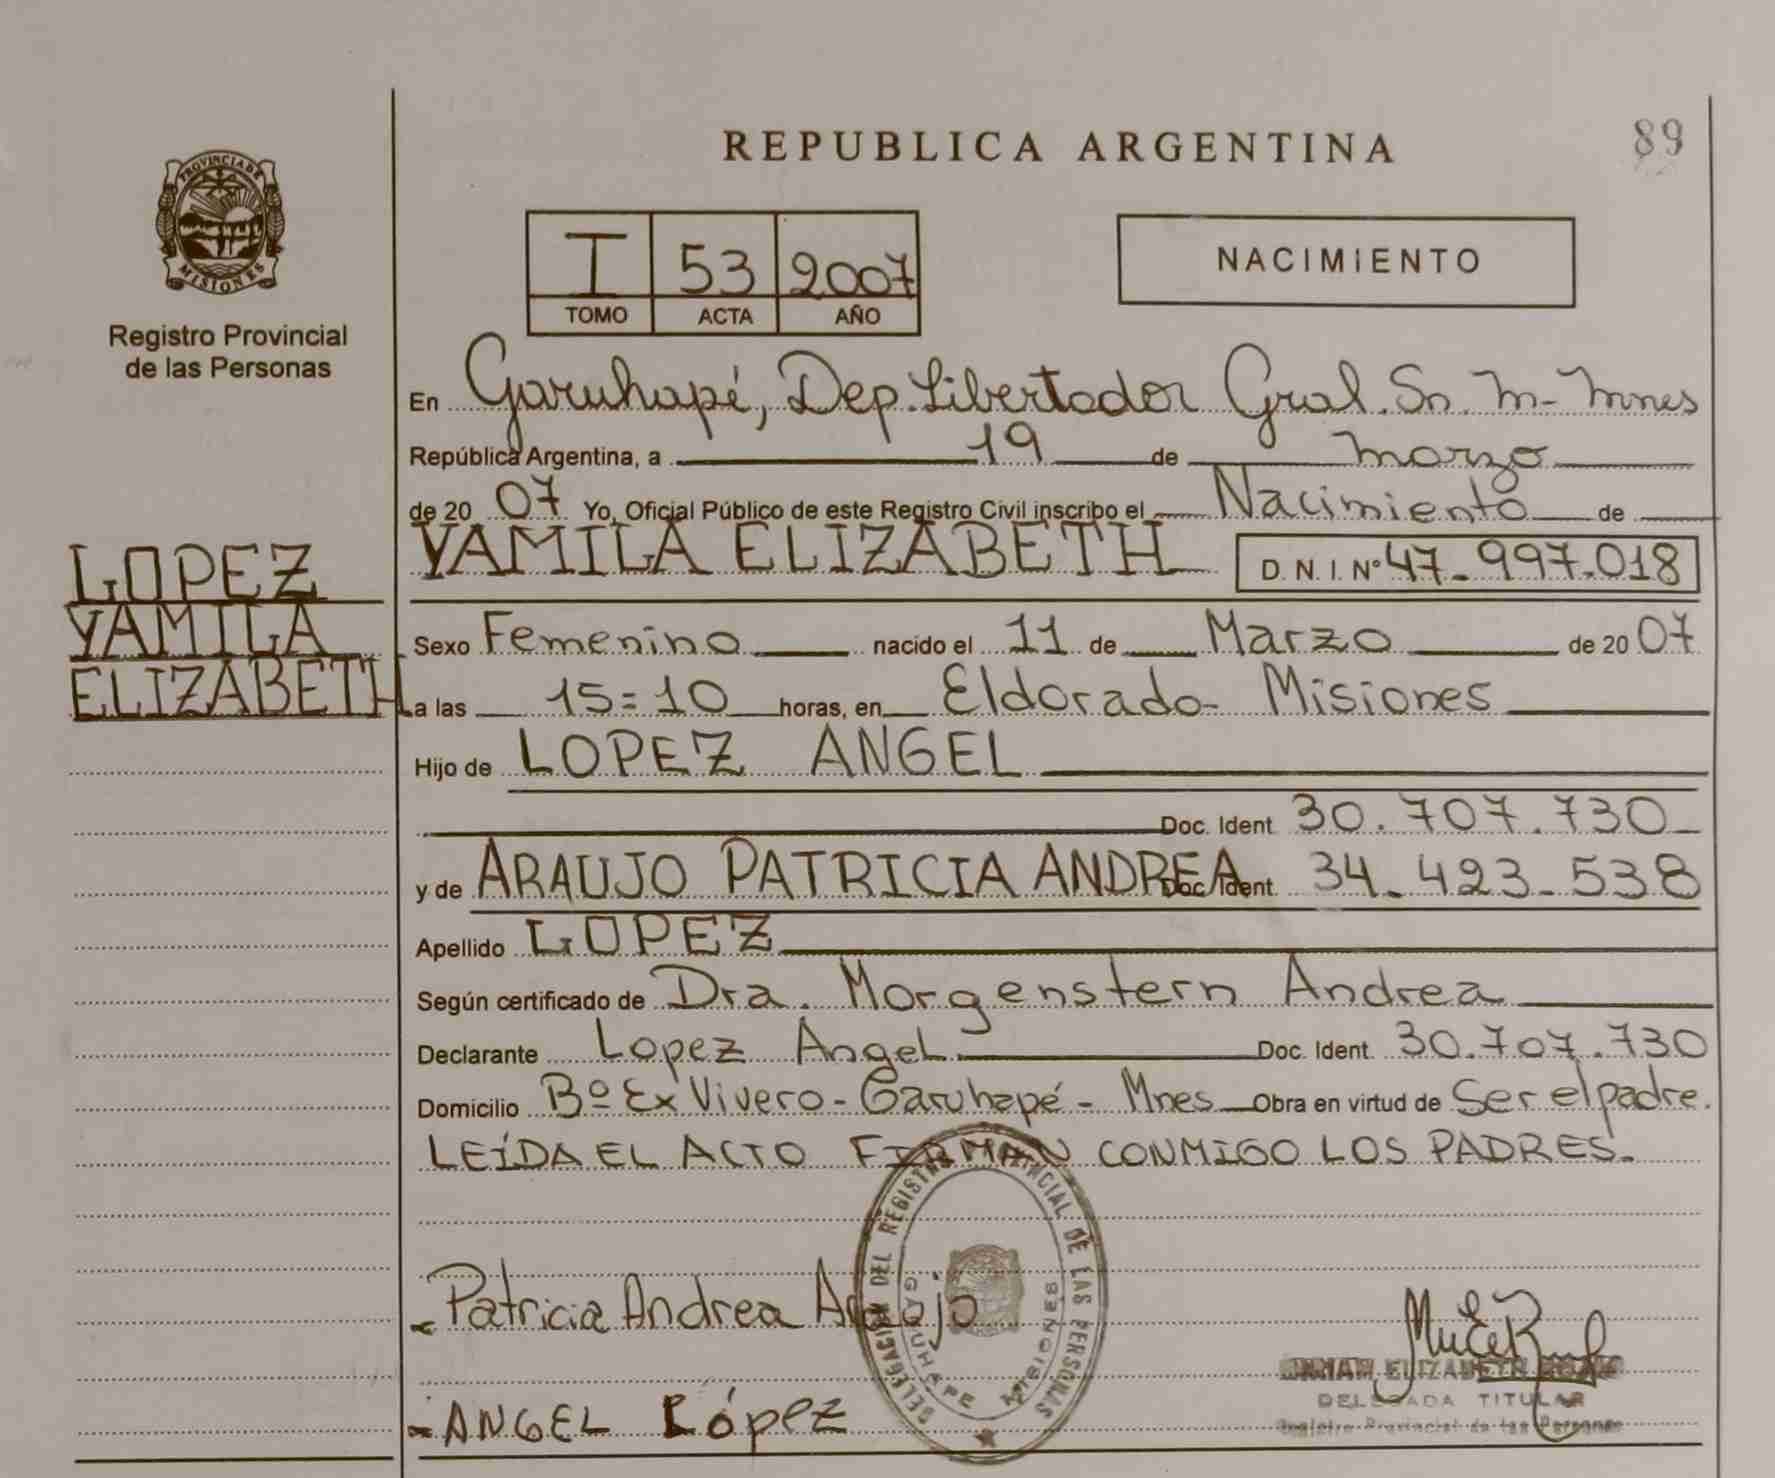 REPUBLICA ARGENTINA
89
PROVINCIA DE
MISIONES
Registro Provincial
de las Personas
I 53 2007
TOMO ACTA AÑO
NACIMIENTO
En Garuhapé, Dep. Libertador Gral. Sn. M- Mnes
República Argentina, a 19 de marzo
de 20 07 Yo, Oficial Público de este Registro Civil inscribo el Nacimiento de
LOPEZ
YAMILA
ELIZABETH
YAMILA ELIZABETH D.N.I. Nº 47-997.018
Sexo Femenino nacido el 11 de Marzo de 20 07
a las 15=10 horas, en Eldorado- Misiones
Hijo de LOPEZ ANGEL
Doc. Ident 30.707.730-
y de ARAUJO PATRICIA ANDREA Doc. Ident 34-423-538
Apellido LOPEZ
Según certificado de Dra. Morgenstern Andrea
Declarante Lopez Angel Doc. Ident. 30.707.730
Domicilio Bº Ex Vivero - Garuhapé - Mnes Obra en virtud de Ser el padre.
LEÍDA EL ACTO FIRMAN CONMIGO LOS PADRES.
DELEGACION DEL REGISTRO PROVINCIAL DE LAS PERSONAS
GARUHAPE MISIONES
- Patricia Andrea Araujo
ELIZABETH
DELEGADA TITULAR
Registro Provincial de las Personas
- ANGEL López